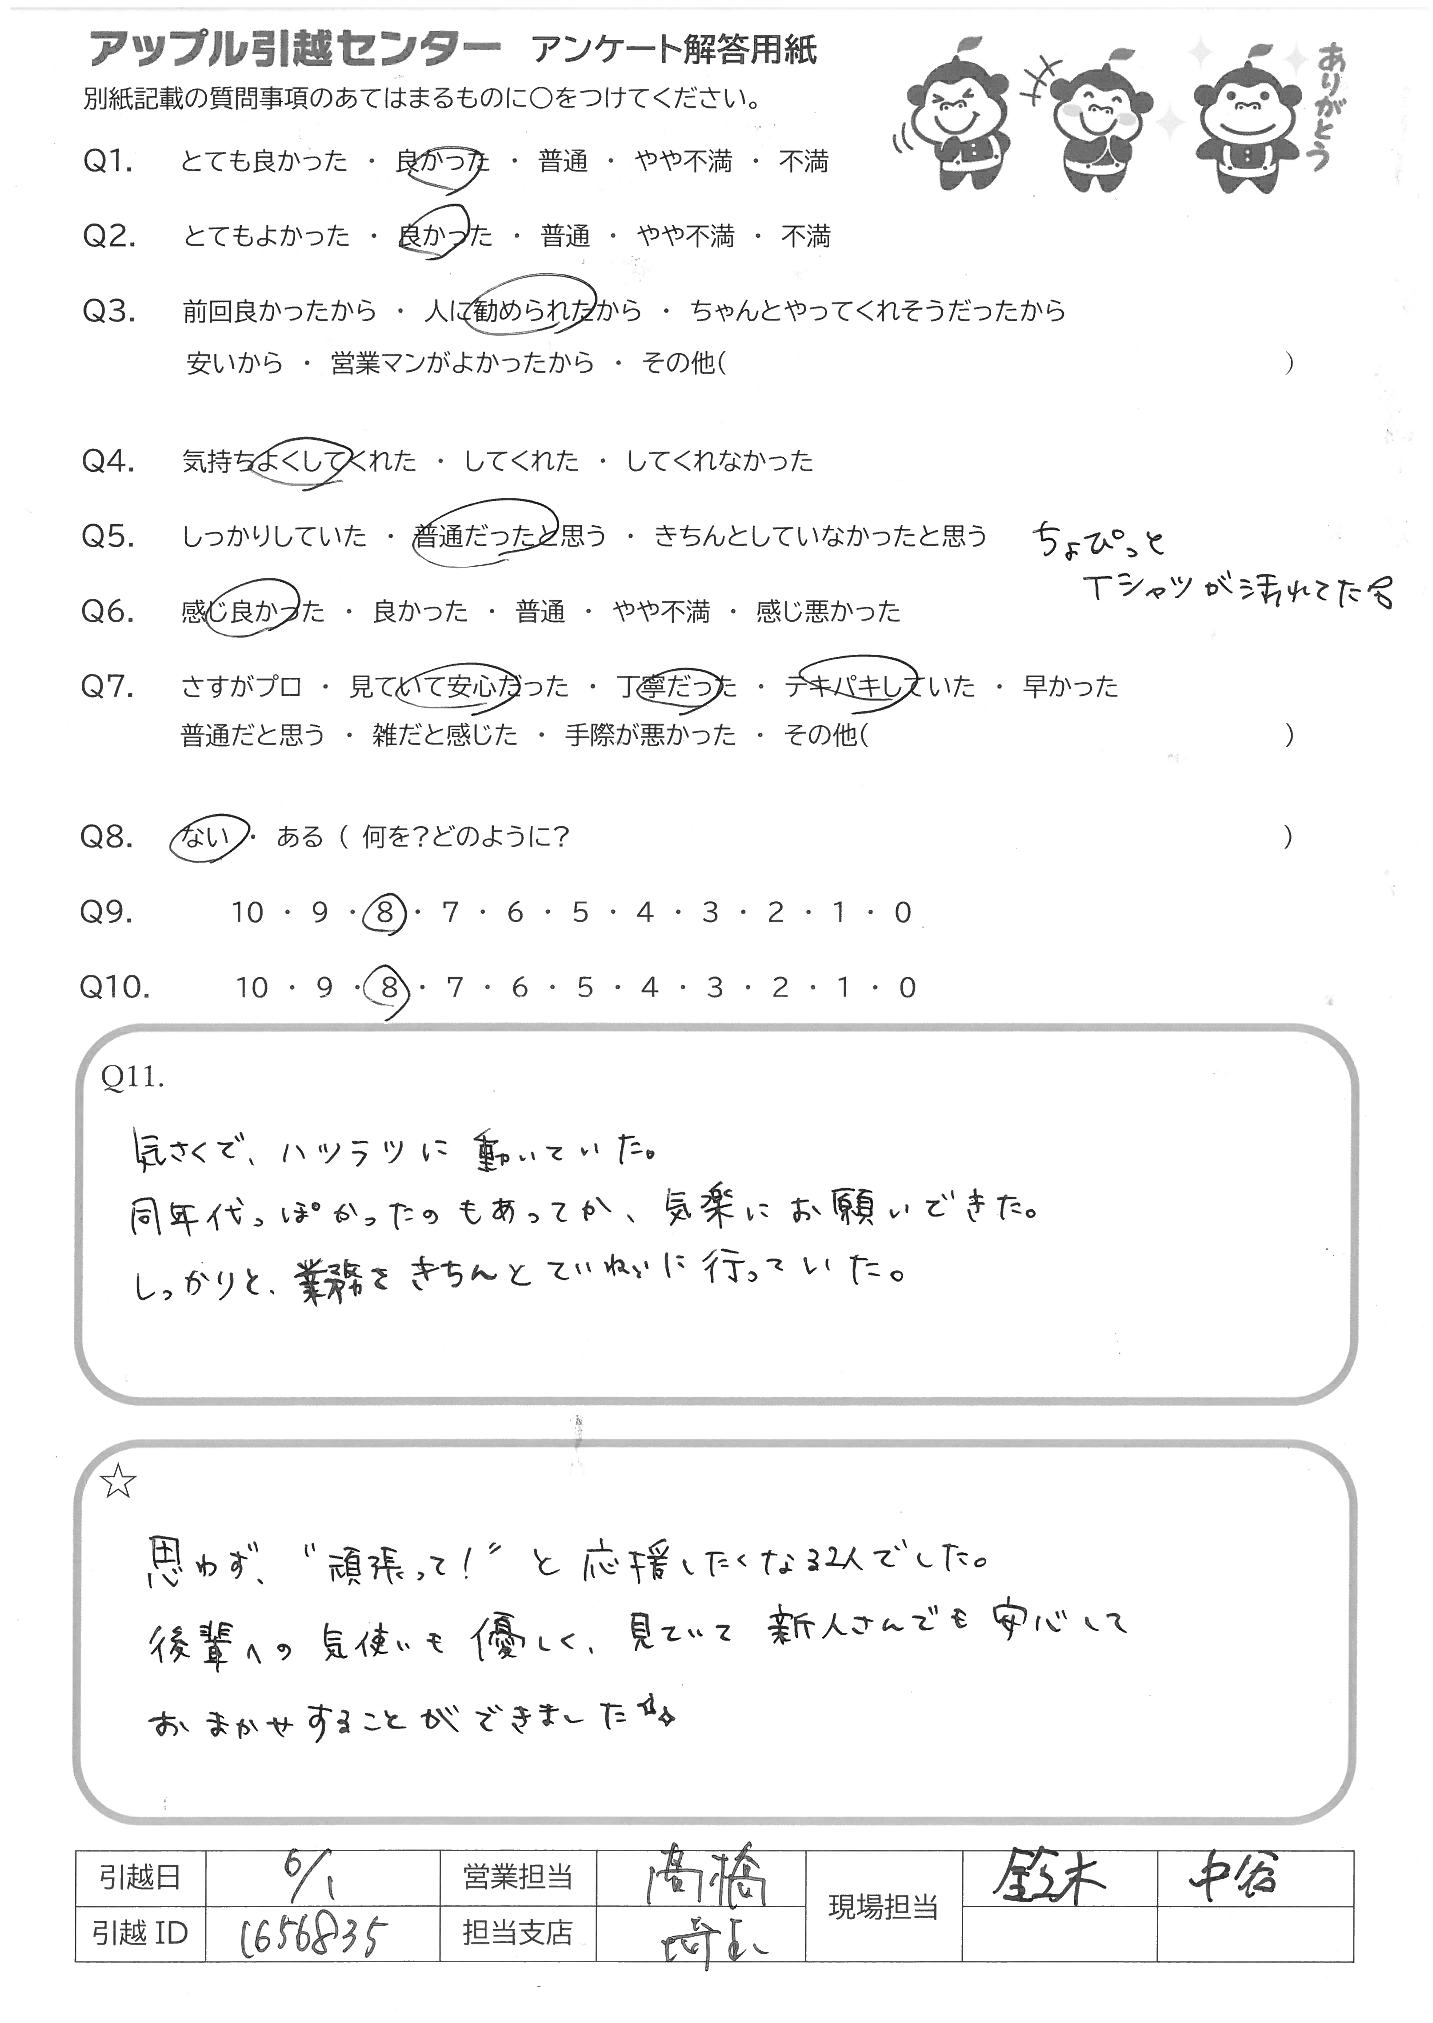 アップル引越センター アンケート解答用紙
ありがとう
別紙記載の質問事項のあてはまるものに○をつけてください。
Q1. とても良かった ・ 良かった ・ 普通 ・ やや不満 ・ 不満
Q2. とてもよかった ・ 良かった ・ 普通 ・ やや不満 ・ 不満
Q3. 前回良かったから ・ 人に勧められたから ・ ちゃんとやってくれそうだったから
安いから ・ 営業マンがよかったから ・ その他( )
Q4. 気持ちよくしてくれた ・ してくれた ・ してくれなかった
Q5. しっかりしていた ・ 普通だったと思う ・ きちんとしていなかったと思う
ちょぴっと
Tシャツが汚れてた
Q6. 感じ良かった ・ 良かった ・ 普通 ・ やや不満 ・ 感じ悪かった
Q7. さすがプロ ・ 見ていて安心だった ・ 丁寧だった ・ テキパキしていた ・ 早かった
普通だと思う ・ 雑だと感じた ・ 手際が悪かった ・ その他( )
Q8. ない ・ ある ( 何を?どのように? )
Q9. 10 ・ 9 ・ 8 ・ 7 ・ 6 ・ 5 ・ 4 ・ 3 ・ 2 ・ 1 ・ 0
Q10. 10 ・ 9 ・ 8 ・ 7 ・ 6 ・ 5 ・ 4 ・ 3 ・ 2 ・ 1 ・ 0
Q11.
気さくで、ハツラツに動いていた。
同年代っぽかったのもあってか、気楽にお願いできた。
しっかりと、業務をきちんとていねいに行っていた。
☆
思わず、"頑張って!"と応援したくなる2人でした。
後輩への気使いも優しく、見ていて新人さんでも安心して
おまかせすることができました☆
引越日 6/1 営業担当 高橋 現場担当 鈴木 中谷
引越ID 1656835 担当支店 埼玉